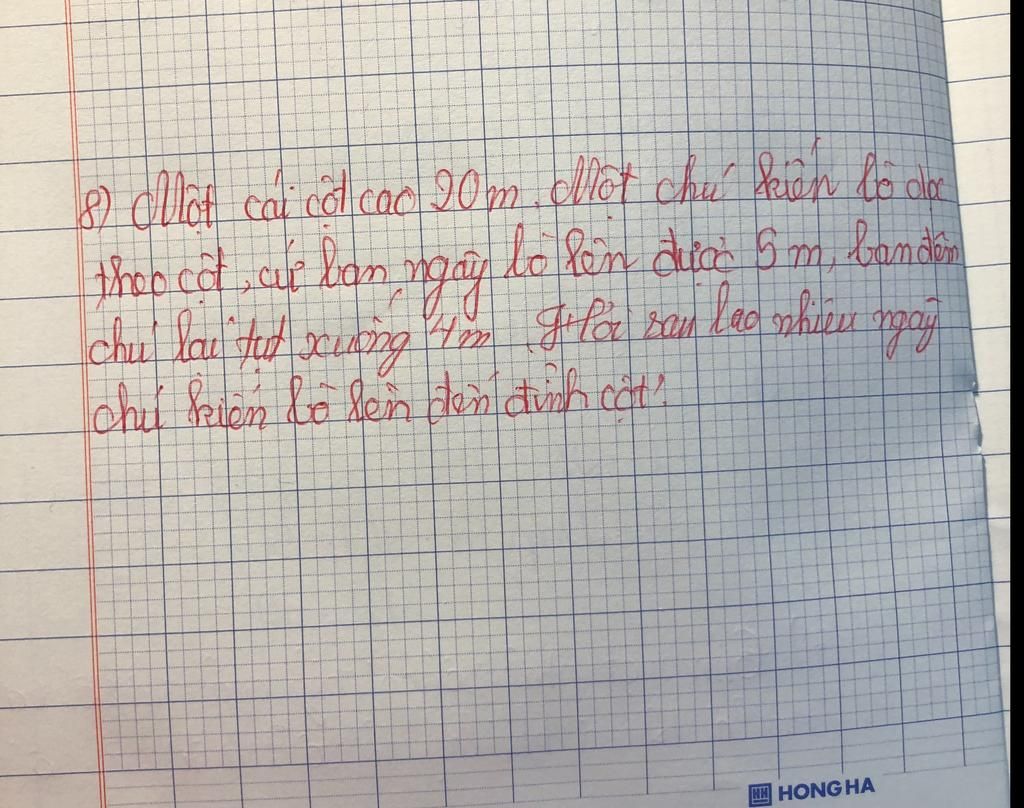 8) Một cái cột cao 20 m. Một chú kiến bò dọc
theo cột, cứ ban ngày bò lên được 5 m, ban đêm
chú lại tụt xuống 4m. Hỏi sau bao nhiêu ngày
chú kiến bò lên đến đỉnh cột?
HH HONG HA